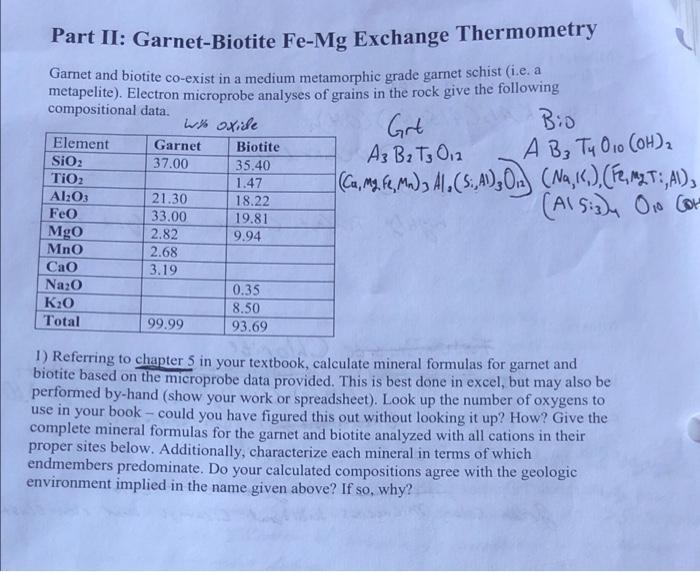 Part II: Garnet-Biotite Fe-Mg Exchange Thermometry
Garnet and biotite co-exist in a medium metamorphic grade garnet schist (i.e. a
metapelite). Electron microprobe analyses of grains in the rock give the following
compositional data.
wt% oxide
Element Garnet Biotite
SiO₂ 37.00 35.40
TiO₂ 1.47
Al₂O₃ 21.30 18.22
FeO 33.00 19.81
MgO 2.82 9.94
MnO 2.68
CaO 3.19
Na₂O 0.35
K₂O 8.50
Total 99.99 93.69
Grt
A₃ B₂ T₃ O₁₂
(Ca, Mg, Fe, Mn)₃ Al₂ (Si, Al)₃ O₁₂
Bio
A B₃ T₄ O₁₀ (OH)₂
(Na, K,), (Fe, Mg, Ti, Al)₃
(Al Si₃)₄ O₁₀ (OH
1) Referring to chapter 5 in your textbook, calculate mineral formulas for garnet and
biotite based on the microprobe data provided. This is best done in excel, but may also be
performed by-hand (show your work or spreadsheet). Look up the number of oxygens to
use in your book – could you have figured this out without looking it up? How? Give the
complete mineral formulas for the garnet and biotite analyzed with all cations in their
proper sites below. Additionally, characterize each mineral in terms of which
endmembers predominate. Do your calculated compositions agree with the geologic
environment implied in the name given above? If so, why?